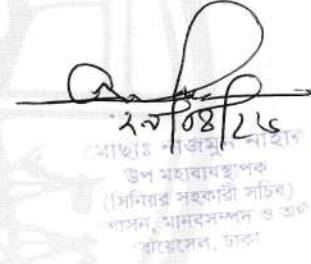 ২৯/০৪/২৬
মোছাঃ নাজমুন নাহার
উপ মহাব্যবস্থাপক
(সিনিয়র সহকারী সচিব)
প্রশাসন, মানবসম্পদ ও অর্থ
বোয়েসেল, ঢাকা